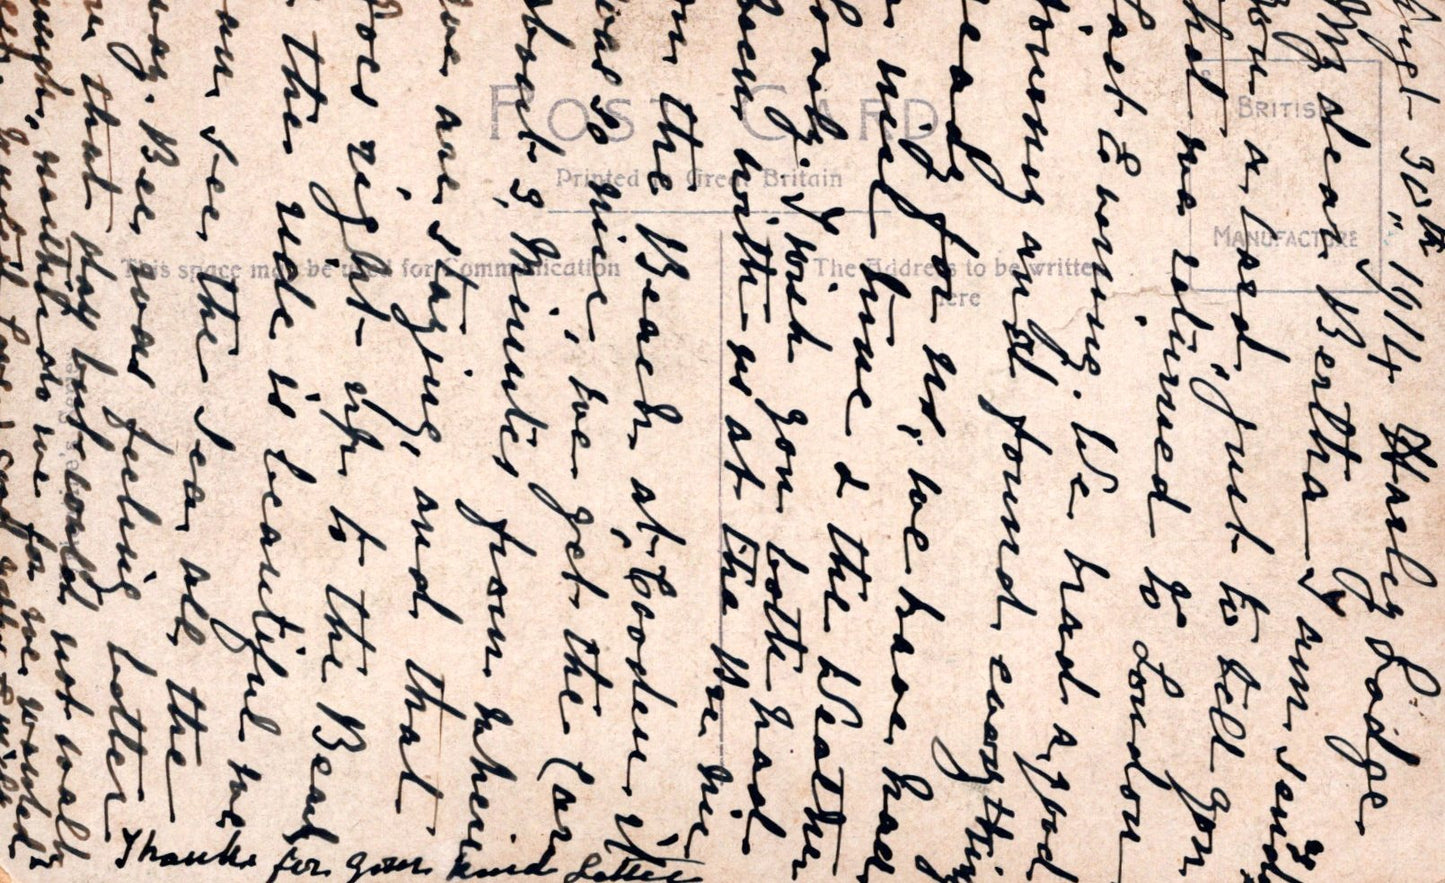 Augt 30th 1914 Harly Lodge.
My dear Bertha I am sending
you a card, just to tell you
that we returned to London
last Evening. We had a good
Journey and found everything
ready for us, we have had
a nice time & the Weather
lovely. I wish you both had
been with us at the
on the Beach at Cooden it
was so nice, we get the Cars
about 3 Minutes from where
we are staying, and that
goes right up to the Beach
& the ride is beautiful we
can see the sea all the
way. Bee was feeling better
in that way but could not walk
much, neither do we for we wanted
Thanks for your kind Letter
POST CARD
Printed in Great Britain
This space may be used for Communication
The Address to be written
here
BRITISH
MANUFACTURE